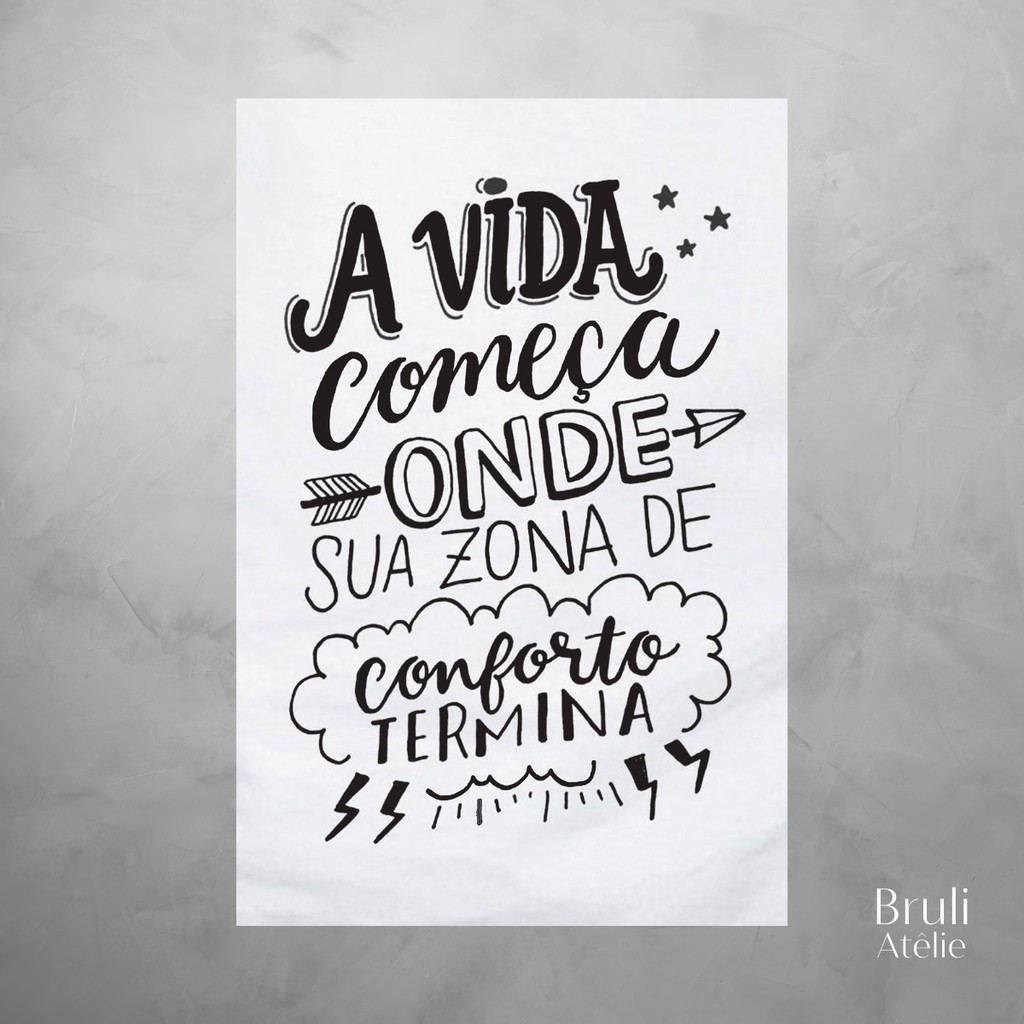 A ViDA
começa
ONDE
SUA ZONA DE
conforto
TERMINA
Bruli
Atêlie